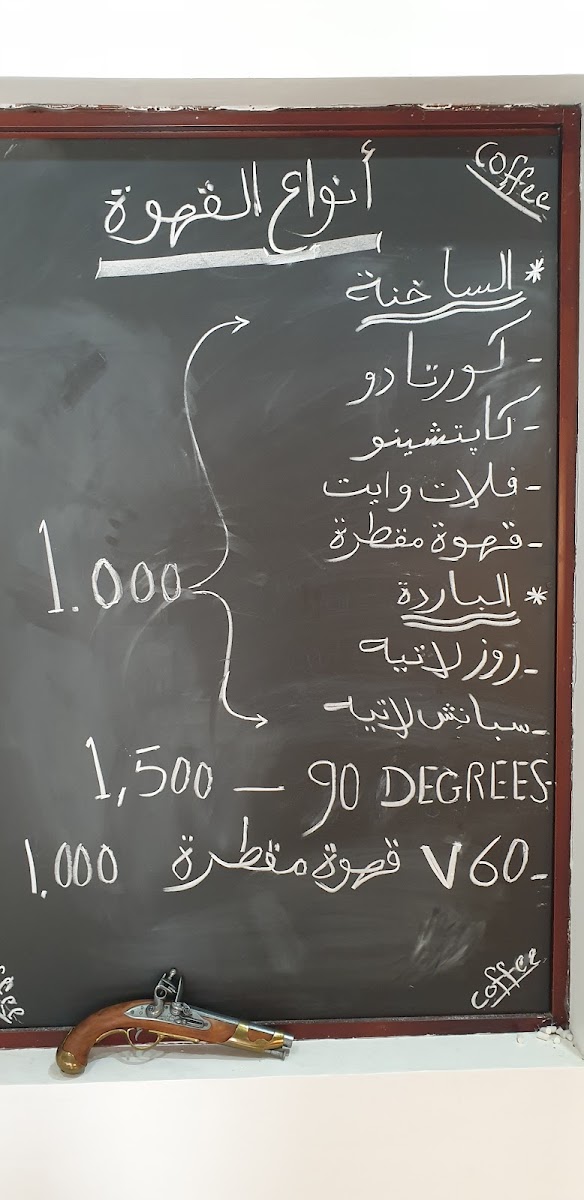 coffee
أنواع القهوة
* الساخنة
- كورتادو
- كابتشينو
- فلات وايت
- قهوة مقطرة
* الباردة
- روز لاتيه
- سبانش لاتيه
1.000
1,500 — 90 DEGREES-
- V60 قهوة مقطرة 1.000
coffee